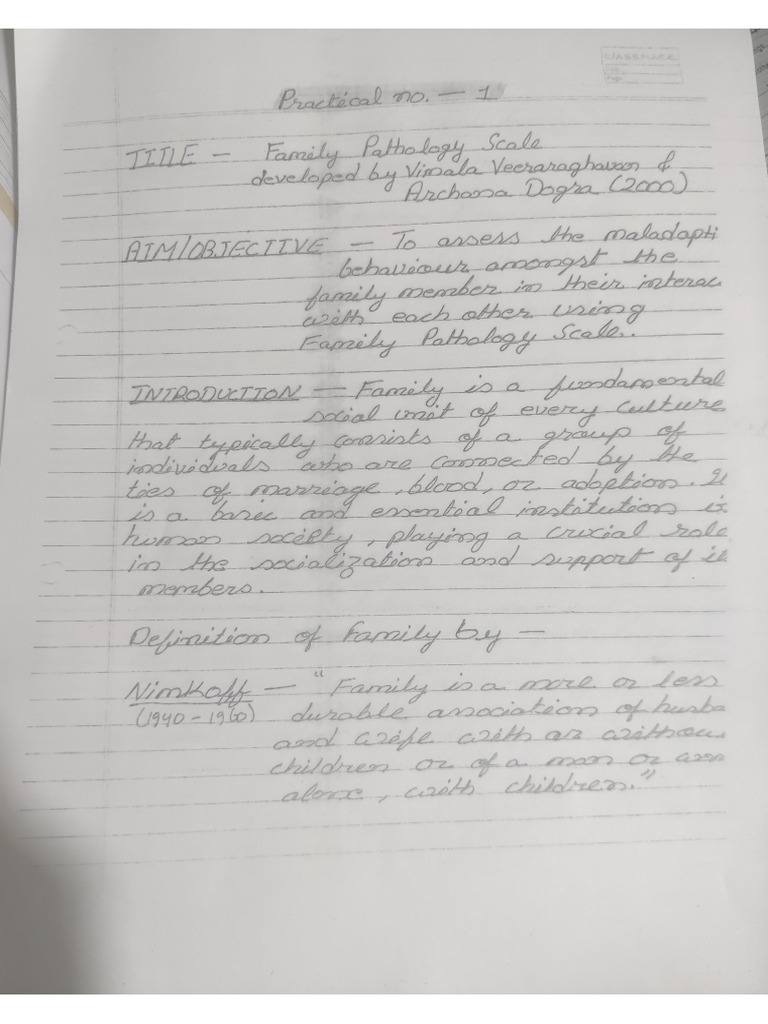 CLASSMATE
Practical no. — 1
TITLE — Family Pathology Scale
developed by Vimala Veeraraghavan &
Archana Dogra (2000)
AIM/OBJECTIVE — To assess the maladapti
behaviour amongst the
family member in their interac
with each other using
Family Pathology Scale.
INTRODUCTION — Family is a fundamental
social unit of every culture
that typically consists of a group of
individuals who are connected by the
ties of marriage, blood, or adoption. It
is a basic and essential institution in
human society, playing a crucial role
in the socialization and support of it
members.
Definition of Family by —
Nimkoff — "Family is a more or less
(1940 - 1960) durable association of husba
and wife with or withou
children or of a man or wom
alone, with children."